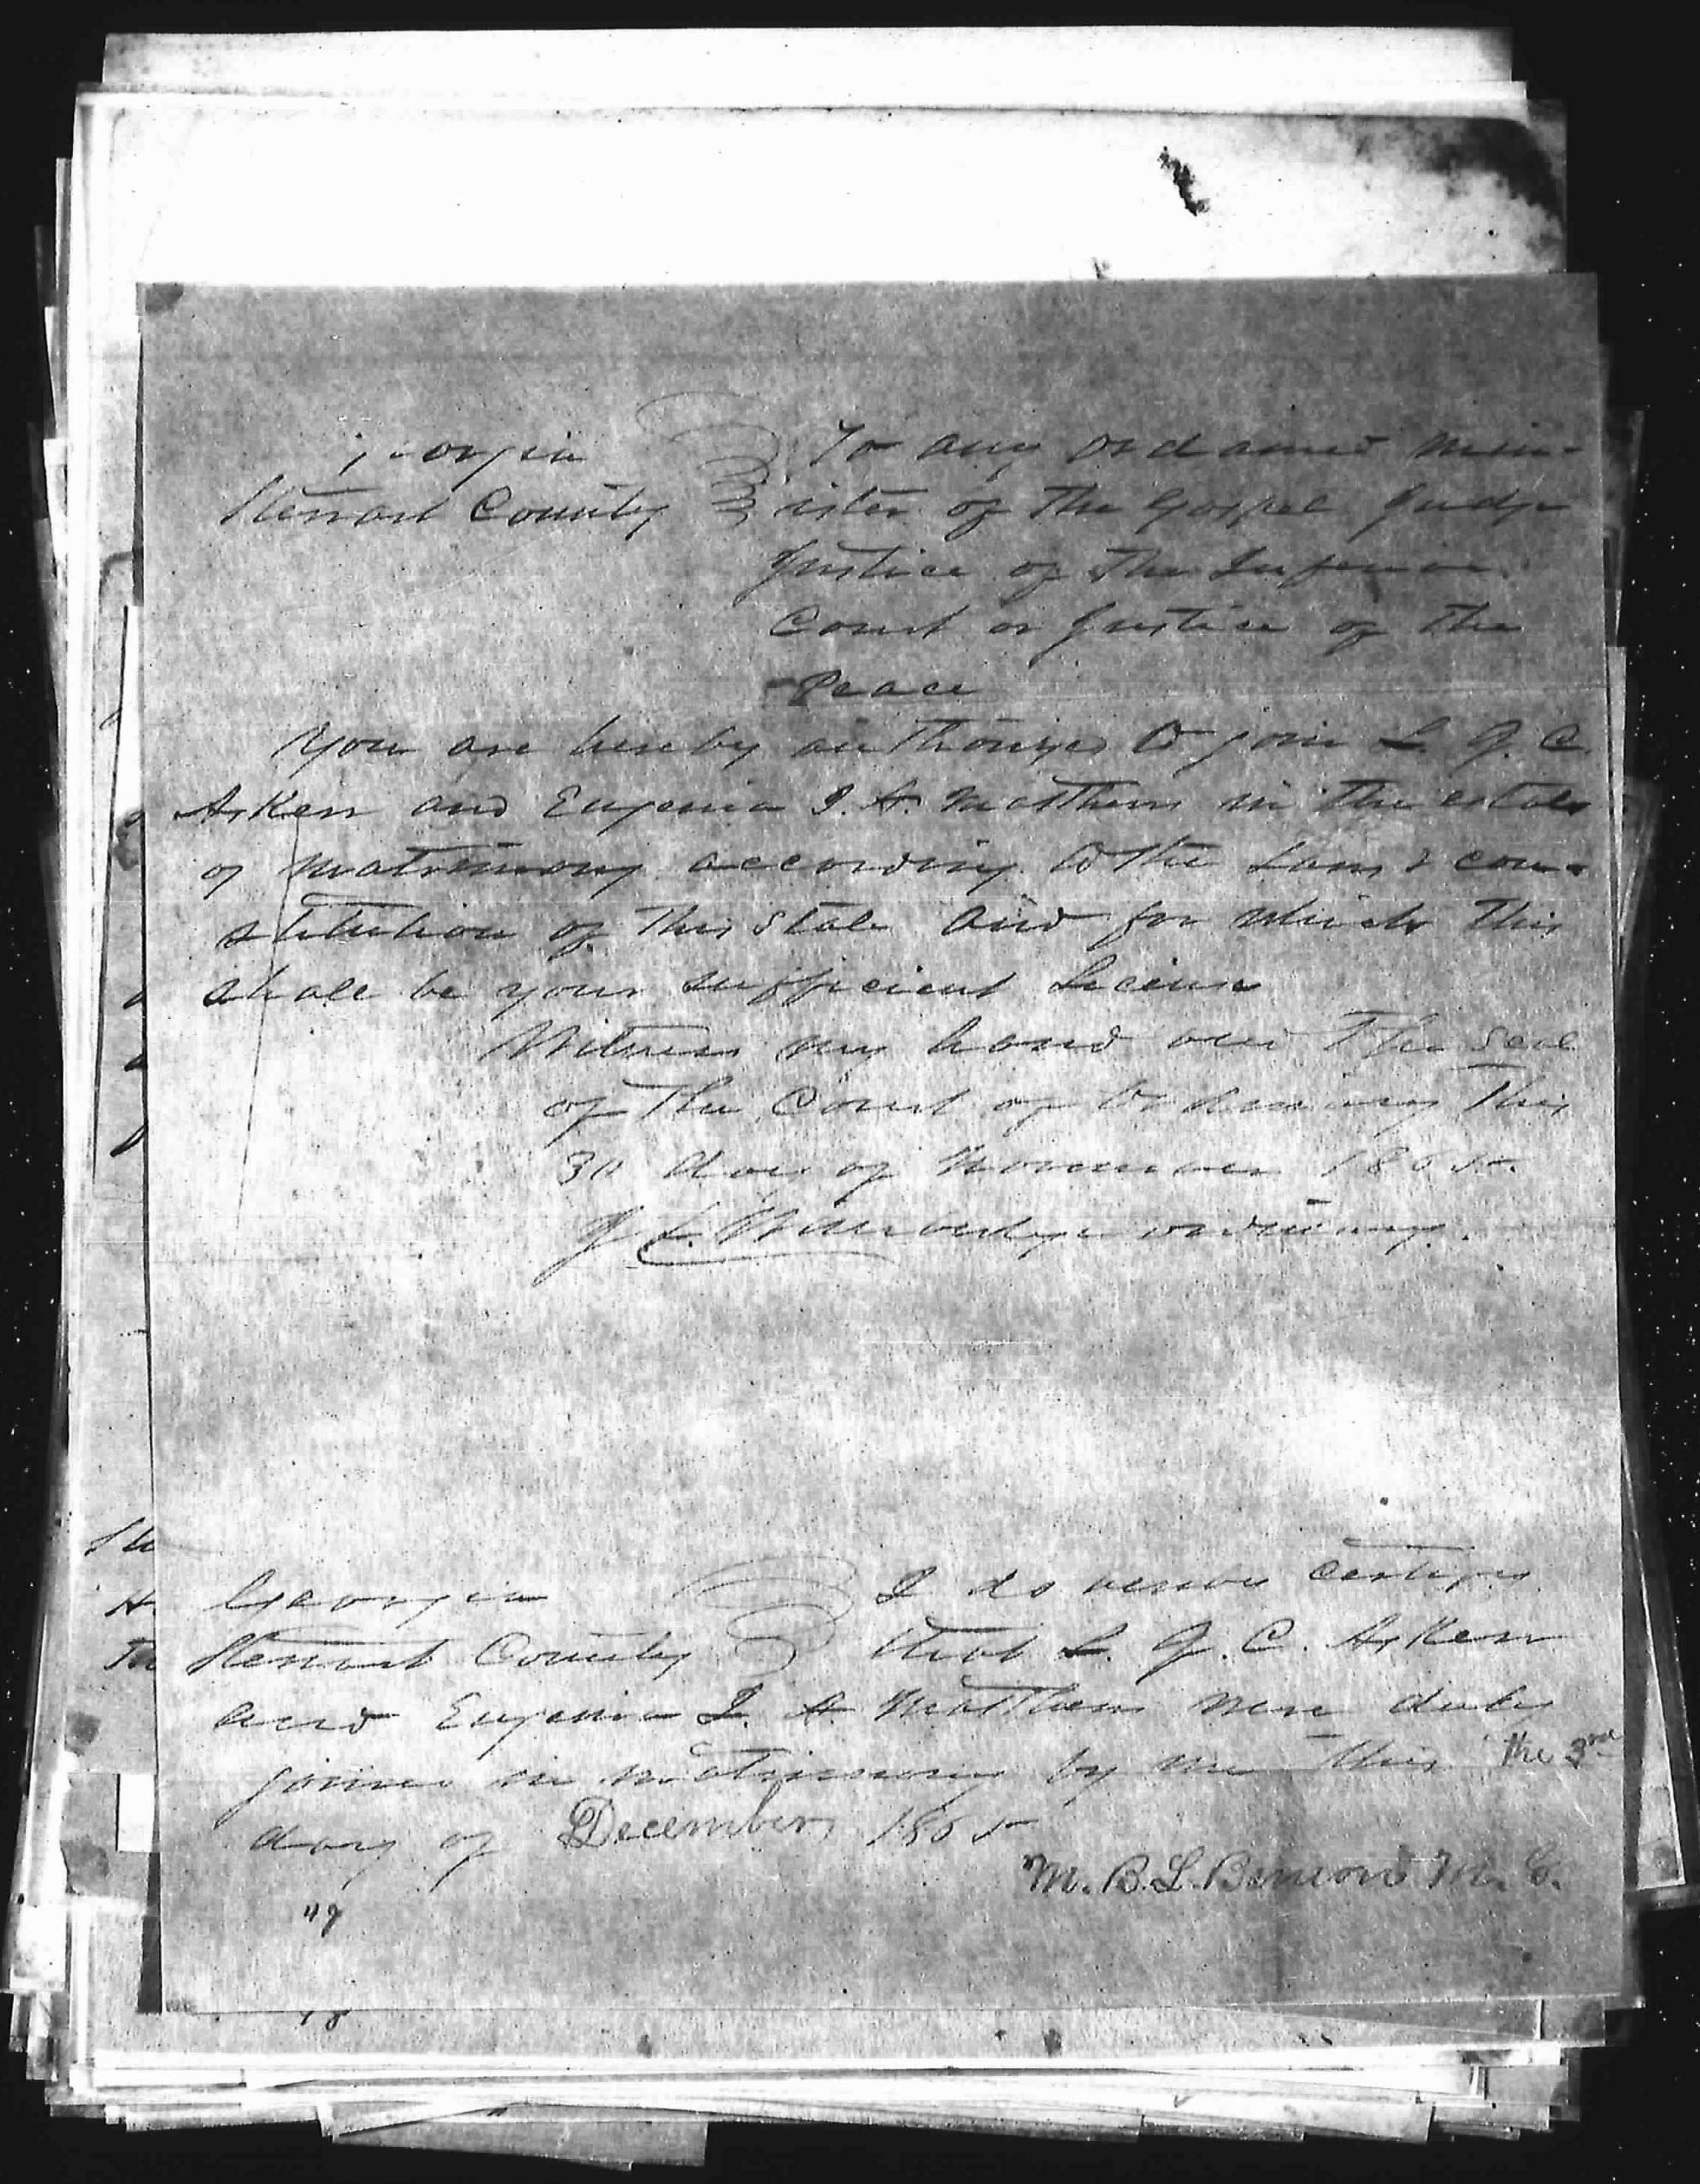 Georgia To any ordained min-
Stewart County ister of the Gospel Judge
Justice of the Inferior
Court or Justice of the
Peace
You are hereby authorized to join L. G. C.
Asken and Eugenia I. A. Matthews in the estate
of matrimony according to the Laws & con-
stitution of this State and for which this
shall be your sufficient License
Witness my hand and The Seal
of The Court of Ordinary This
30 day of November 1865.
J L. Wimberly ordinary.
Georgia I do hereby certify
Stewart County that L. G. C. Asken
and Eugenia I. A. Matthews were duly
joined in matrimony by me this the 3rd
day of December 1865
M. B. L. M. G.
49
48